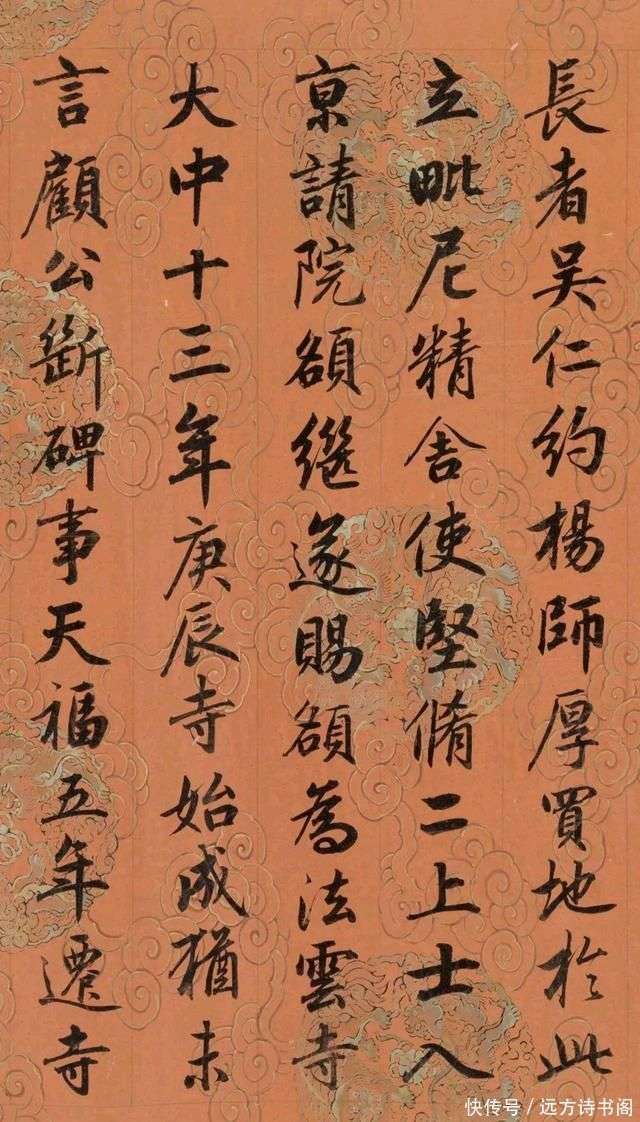 長者吴仁約楊師厚買地於此
立毗尼精舎使堅脩二上士入
京請院額繼遂賜額為法雲寺
大中十三年庚辰寺始成猶未
言顧公斷碑事天福五年遷寺
快传号/远方诗书阁